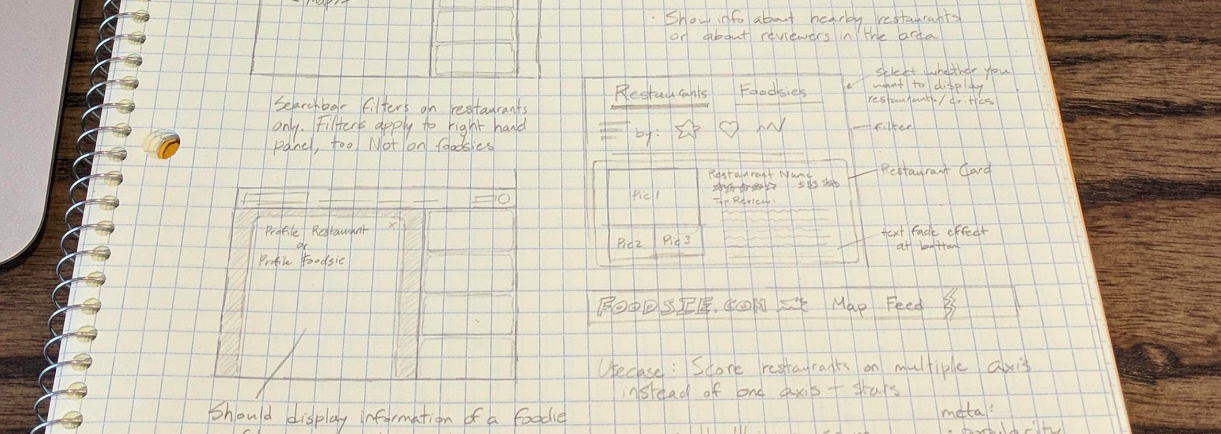 Map
· Show info about nearby restaurants
or about reviewers in the area
Searchbar filters on restaurants
only. Filters apply to right hand
panel, too. Not on foodsies
Select whether you
want to display
restaurants/critics
Restaurants Foodsies
by:
Filter
Restaurant Card
Pic 1
Pic 2
Pic 3
Restaurant Name
Top Review:
text fade effect
at bottom
Profile Restaurant
or
Profile Foodsie
x
FOODSIE.COM Map Feed
Usecase: Score restaurants on multiple axis
instead of one axis - stars
Should display information of a foodie
meta: